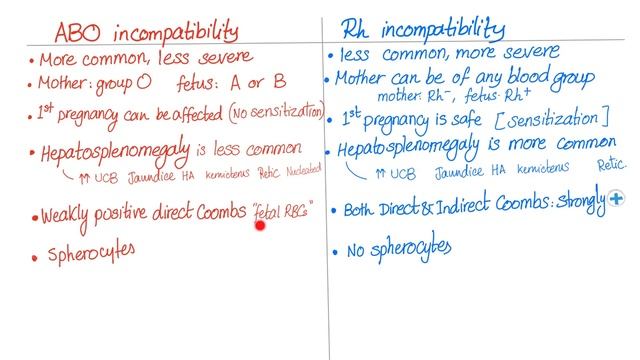 ABO incompatibility
• More common, less severe
• Mother: group O fetus: A or B
• 1st pregnancy can be affected (No sensitization)
• Hepatosplenomegaly is less common
↑↑ UCB Jaundice HA kernicterus Retic Nucleated
• Weakly positive direct Coombs "fetal RBCs"
• Spherocytes
Rh incompatibility
• less common, more severe
• Mother can be of any blood group
mother: Rh⁻, fetus: Rh⁺
• 1st pregnancy is safe [sensitization]
• Hepatosplenomegaly is more common
↑↑ UCB Jaundice HA kernicterus Retic.
• Both Direct & Indirect Coombs: Strongly +
• No spherocytes